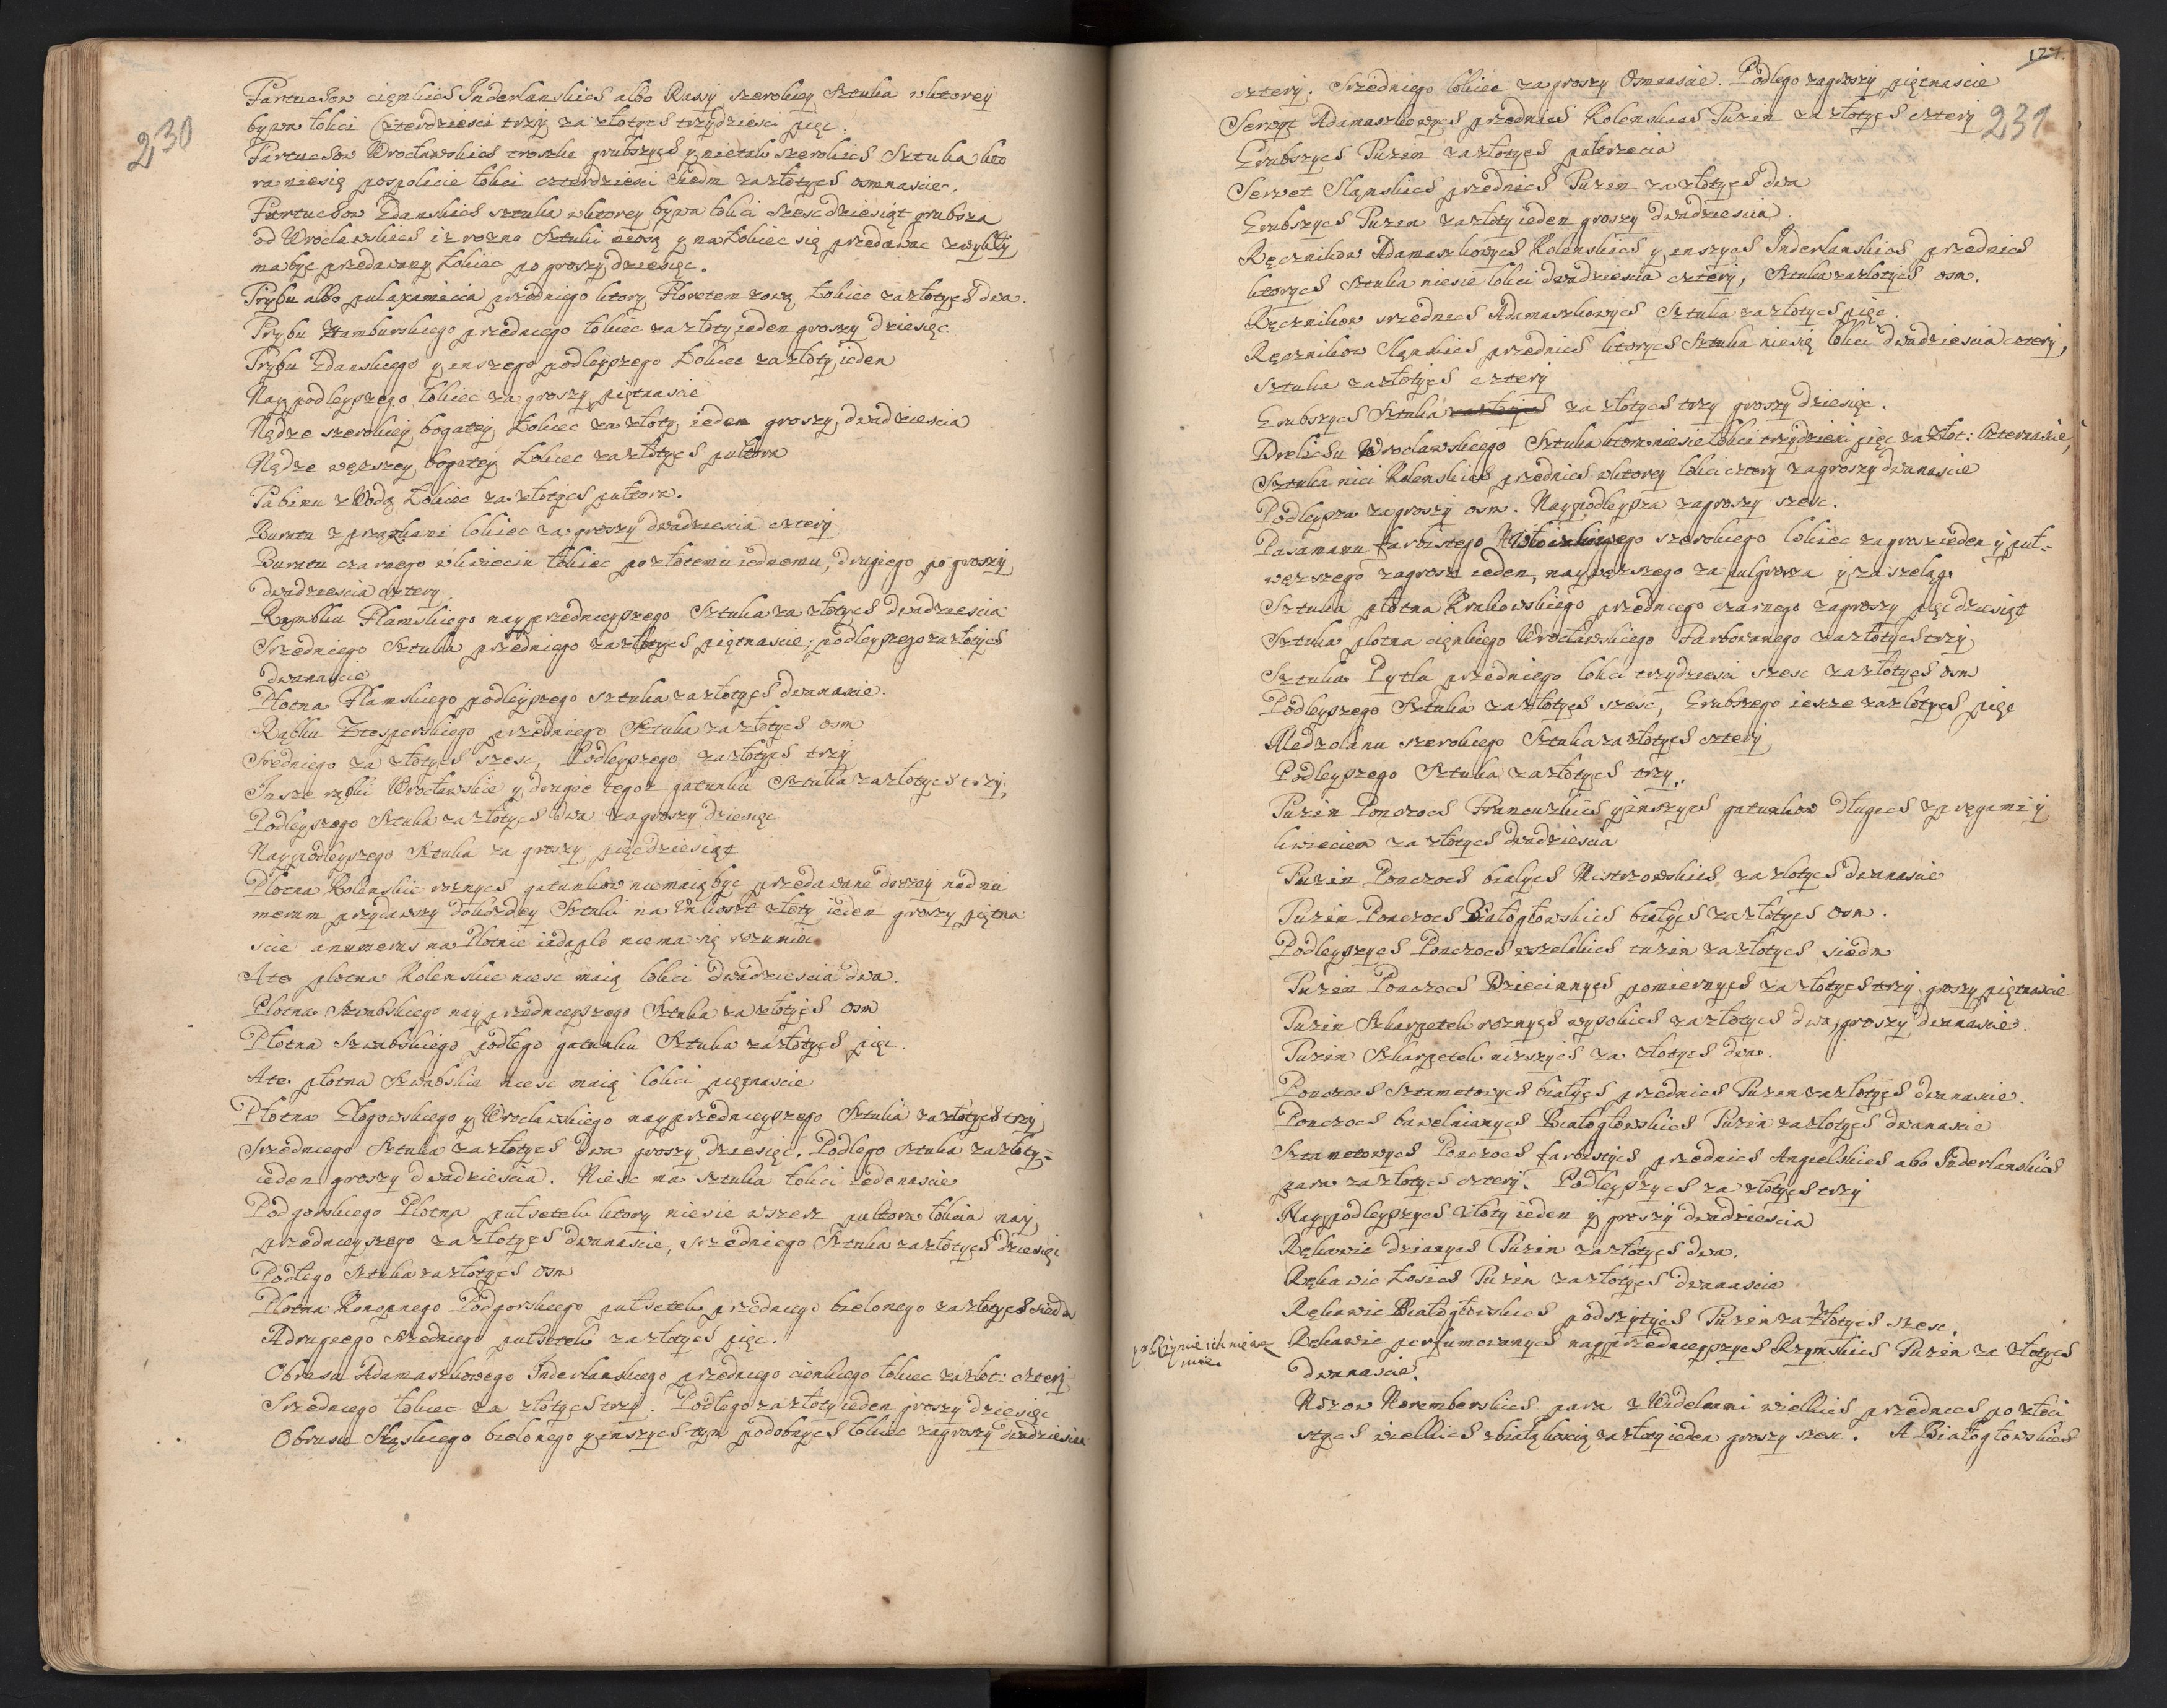 230
Fartuchow cięnkich Inderlanskich albo Rasÿ szerokieÿ Sztuka wktorey
bywa łokci Czterdziesci trzÿ za złotych trzydziesci pięc.
Fartuchow Wrocławskich troszke grubszych y nietak szerokich Sztuka kto
ra niesię pospolicie łokci czterdziesci siedm za złotych osmnascie.
Fartuchow Gdanskich sztuka wktorey bywa łokci szescdziesiąt grubsza
od Wrocławskich iz rozno Sztuki niosą y na Łokiec się przedawac zwykłÿ
ma byc przedawanÿ Łokiec po groszy dziesięc.
Trypu albo pulaxamiecia przedniego ktorÿ Floretem zową Łokiec za złotych dwa.
Trypu Hamburskiego przedniego łokiec za złoty ieden groszy dziesięc
Trypu Gdanskiego y inszego podleyszego Łokiec za złoty ieden
Naypodleyszego łokiec za groszy piętnascie
Kędze szerokieÿ bogateÿ Łokiec za złoty ieden groszy dwadziescia
Kędze węzszey bogatey Łokiec za złotych pułtora
Tabinu z Wodą Łokiec za złotych pułtora.
Buratu z prązkami łokiec za groszy dwadziescia czterÿ
Buratu czarnego wkwiecin łokiec po złotemu iednemu, drugiego po groszÿ
dwadziescia cztery.
Rąmbku Flamskiego nayprzednieyszego Sztuka za złotych dwadziescia
Srzedniego Sztuka przedniego za złotych piętnascie, podleyszego za złotych
dwanascie
Płotna Flamskiego podleyszego sztuka za złotych dwanascie.
Rąbku przedniego Sztuka za złotych osm
Sredniego za złotych szesc, Podleyszego za złotych trzy
Insze rąbki Wrocławskie y drugie tegoz gatunku Sztuka za złotych trzÿ,
Podleyszego Sztuka za złotych dwa za groszy dziesięc
Naypodleyszego Sztuka za groszy pięcdziesiąt
Płotna Kolenskie roznych gatunkow niemaią byc przedawane drozey nad nu
merum przydawszy dokazdey Sztuki na Unkoszt złoty ieden groszy piętna
scie a numerus na Płotnie niema się rozumiec
Ate płotna Kolenskie niesc maią łokci dwadziescia dwa.
Płotna Szwabskiego nayprzednieyszego Sztuka za złotych osm
Płotna Szwabskiego podłego gatunku Sztuka za złotych pięc.
Ate płotna Szwabskie niesc maią łokci piętnascie
Płotna Głogowskiego y Wrocławskiego nayprzednieyszego Sztuka za złotych trzÿ
Srzedniego Sztuka za złotych dwa groszy dziesięc. Podłego sztuka za złoty=
ieden groszy dwadziescia. Niesc ma sztuka łokci iedenascie
Podgorskiego Płotna pułsetek ktory niesie wszerz pułtora łokcia nay
przednieyszego za złotych dwanascie, srzedniego Sztuka za złotych dziesięc
Podłego Sztuka za złotych osm
Płotna Konopnego Podgorskiego pułsetek przedniego bielonego za złotych siedm
A drugiego srzedniego pułsetek za złotych pięc.
Obrusu Adamaszkowego Inderlanskiego przedniego cienkiego łokiec za złot: czterÿ
Srzedniego łokiec za złotych trzy. Podłego za złoty ieden groszy dziesięc
Obrusu Sląskiego bielonego y inszych tym podobnych łokiec za groszy dwadziescia
127.
231
czterÿ. Srzedniego łokiec za groszy Osmnascie. Podłego za groszÿ piętnascie
Serwet Adamaszkowych przednich Kolenskich Tuzin za złotych czterÿ
Grubszych Tuzin za złotych pułtrzecia
Serwet Sląnskich przednich Tuzin za złotych dwa
Grubszych Tuzin za złoty ieden groszy dwadziescia.
Ręcznikow Adamaszkowych Kolenskich y inszych Inderlanskich przednich
ktorych Sztuka niesie łokci dwadziescia czterÿ, Sztuka za złotych osm.
Ręcznikow srzednich Adamaszkowych Sztuka za złotych pięc.
Ręcznikow Sląnskich przednich ktorych Sztuka niesię łokci dwadziescia czterÿ,
Sztuka za złotych czterÿ
Grubszych Sztuka za złotych za złotych trzy groszy dziesięc.
Drelichu Wrocławskiego Sztuka ktora niesie łokci trzydziesci pięc za złot: Czternascie,
Sztuka nici Kolenskich przednich wktorey łokci cztery za groszy dwanascie
Podleysza za groszÿ osm. Naypodleysza za groszy szesc.
Pasamanu farbistego szerokiego łokiec za grosz ieden y puł=
węzszego za grosz ieden, naywęzszego za pulgrosza y za szeląg.
Sztuka płotna Krakowskiego przedniego czarnego za groszy pięcdziesiąt
Sztuka płotna cięnkiego Wrocławskiego Farbowanego za złotych trzÿ
Sztuka Pytla przedniego łokci trzydziesci szesc za złotych osm
Podleyszego Sztuka za złotych szesc, Grubszego iesze za złotych pięc
Medzolanu szerokiego Sztuka za złotych czterÿ
Podleyszego Sztuka za złotych trzy.
Tuzin Ponczoch Francuzkich y inszych gatunkow długich z pręgami y
kwieciem za złotych dwadziescia
Tuzin Ponczoch białych Mistrzowskich za złotych dwanascie
Tuzin Ponczoch Białogłowskich białych za złotych osm.
Podleyszych Ponczoch wszelakich tuzin za złotych siedm
Tuzin Ponczoch Dziecinnych pomiernych za złotych trzÿ groszy piętnascie
Tuzin Szkarpetek roznych wysokich za złotych dwa, groszy dwanascie.
Tuzin Szkarpetek nizszych za złotych dwa.
Ponczoch Sztametowych białych przednich Tuzin za złotych dwanascie.
Ponczoch bawełnianych Białogłowskich Tuzin za złotych dwanascie
Sztametowych Ponczoch farbistych przednich Angielskich abo Inderlanskich
para za złotych czterÿ. Podleyszych za złotych trzÿ
Naypodleyszych złoty ieden y groszÿ dwadziescia
Rękawic dzianych Tuzin za złotych dwa.
Rękawic Łosich Tuzin za złotych dwanascie
Rękawic Białogłowskich podszytych Tuzin za złotych szesc.
Rękawic perfumowanych nayprzednieyszych Rzymskich Tuzin za złotych
dwanascie.
Nozow Noremberskich para z Widelcami wielkich przednich pozłoci
stych wielkich zbiałą koscią za złoty ieden groszy szesc. A Białogłowskich